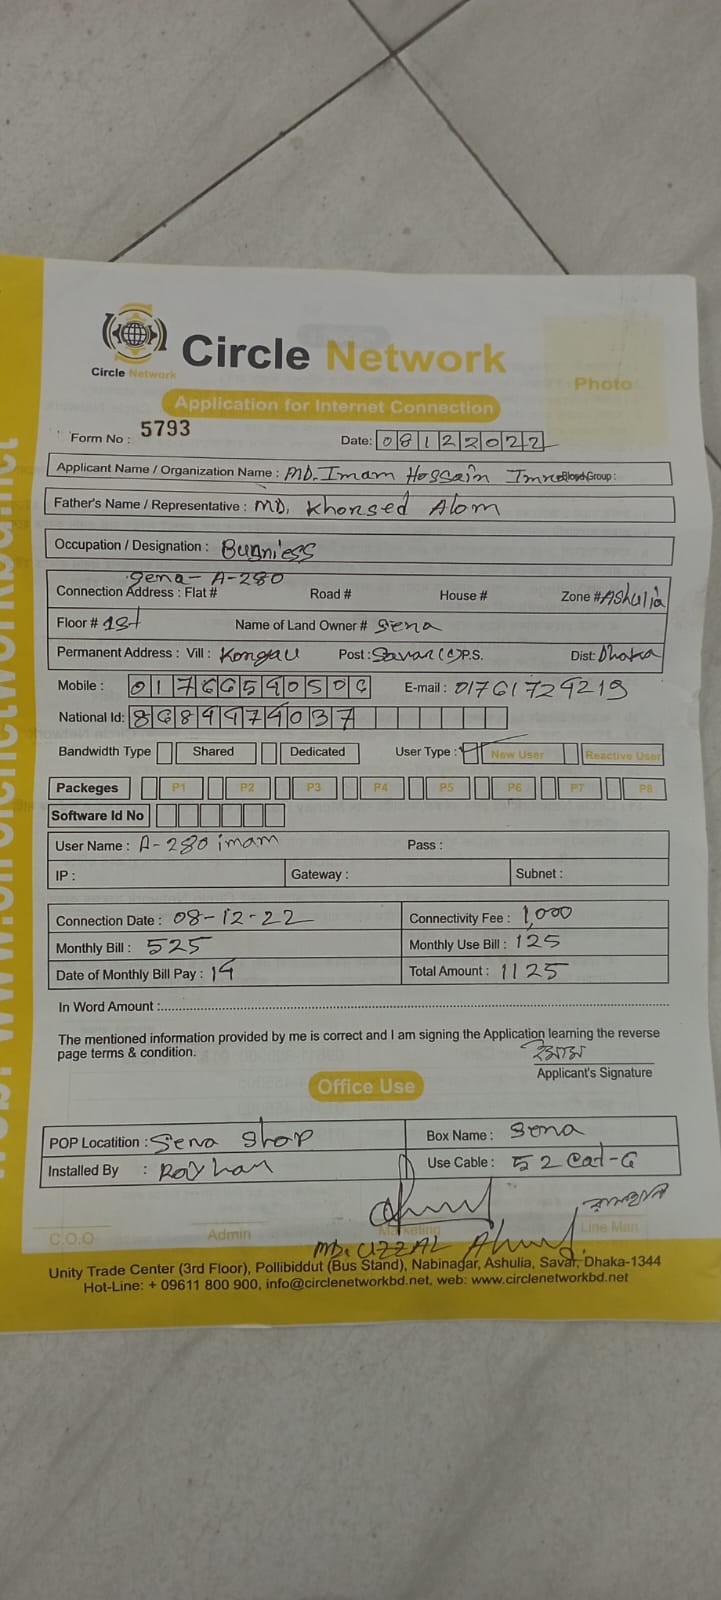 Circle Network
Circle Network
Photo
Application for Internet Connection
Form No : 5793
Date: 08122022
Applicant Name / Organization Name : MD. Imam Hossain Blood Group :
Father's Name / Representative : MD. Khorsed Alom
Occupation / Designation : Busniess
Sena- A-280
Connection Address : Flat # Road # House # Zone # Ashulia
Floor # 1st Name of Land Owner # Sena
Permanent Address : Vill : Post : Savar (c) P.S. Dist: Dhaka
Mobile : E-mail : 01761729219
National Id:
Bandwidth Type Shared Dedicated User Type : New User Reactive User
Packeges P1 P2 P3 P4 P5 P6 P7 P8
Software Id No
User Name : A-280 imam Pass :
IP : Gateway : Subnet :
Connection Date : 08-12-22 Connectivity Fee : 1,000
Monthly Bill : 525 Monthly Use Bill : 125
Date of Monthly Bill Pay : Total Amount : 1125
In Word Amount :
The mentioned information provided by me is correct and I am signing the Application learning the reverse
page terms & condition.
ইমাম
Applicant's Signature
Office Use
POP Locatition : Sena Shop Box Name : Sena
Installed By : Rayhan Use Cable : 52 Cat-6
C.O.O Admin Marketing Line Man
MD. UZZAL
Unity Trade Center (3rd Floor), Pollibiddut (Bus Stand), Nabinagar, Ashulia, Savar, Dhaka-1344
Hot-Line: + 09611 800 900, info@circlenetworkbd.net, web: www.circlenetworkbd.net